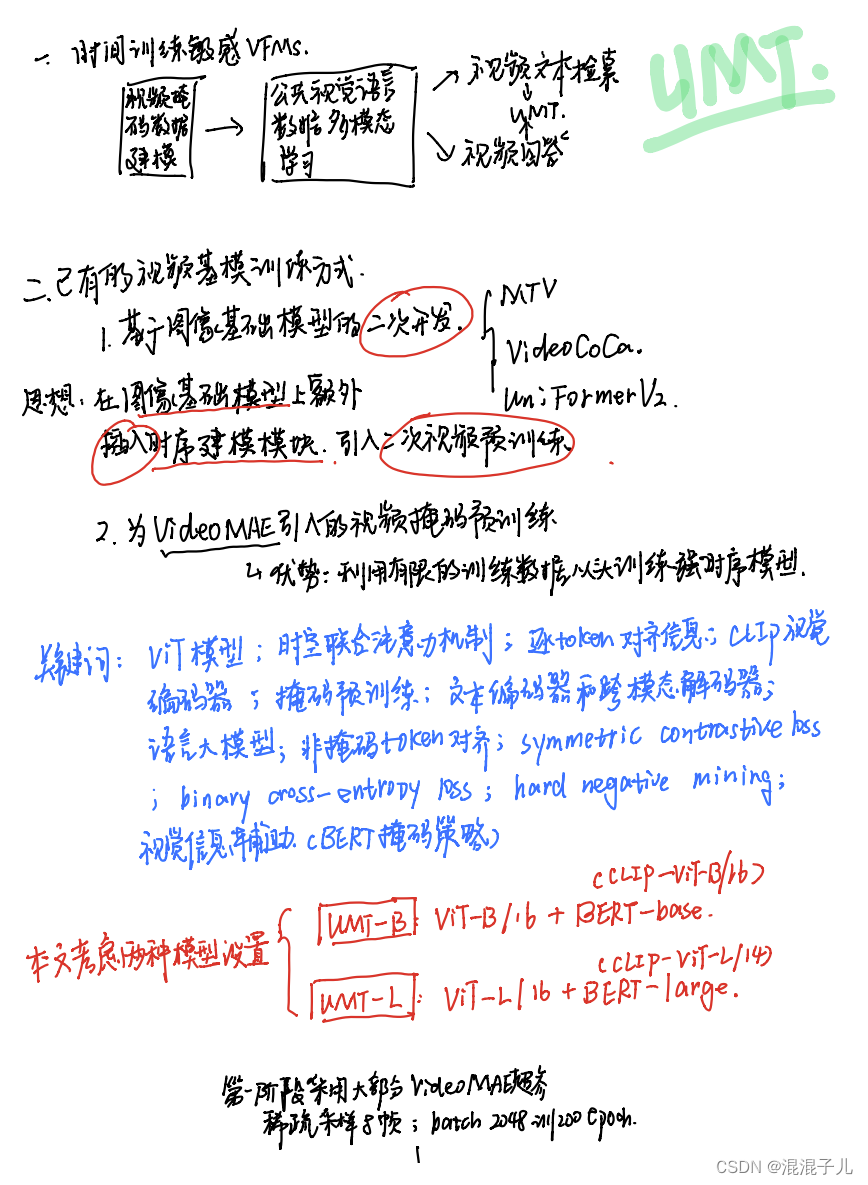 UMT.
一. 时间训练敏感VFMs.
视频掩
码数据
建模
公共视觉语言
数据多模态
学习
视频文本检索
UMT.
视频问答
二. 已有的视频基模训练方式.
1. 基于图像基础模型的二次开发.
MTV
VideoCoCa.
UniFormerV2.
思想: 在图像基础模型上额外
插入时序建模模块. 引入二次视频预训练
2. 为VideoMAE引入的视频掩码预训练
↳优势: 利用有限的训练数据从头训练强时序模型.
关键词: ViT模型; 时空联合注意力机制; 逐token对齐信息; CLIP视觉
编码器; 掩码预训练; 文本编码器和跨模态解码器;
语言大模型; 非掩码token对齐; symmetric contrastive loss
; binary cross-entropy loss; hard negative mining;
视觉信息辅助. (BERT掩码策略)
本文考虑两种模型设置
(CLIP-ViT-B/16)
UMT-B: ViT-B/16 + BERT-base.
(CLIP-ViT-L/14)
UMT-L: ViT-L/16 + BERT-large.
第一阶段采用大部分VideoMAE超参
稀疏采样8帧; batch 2048 训200 epoch.
CSDN @混混子儿